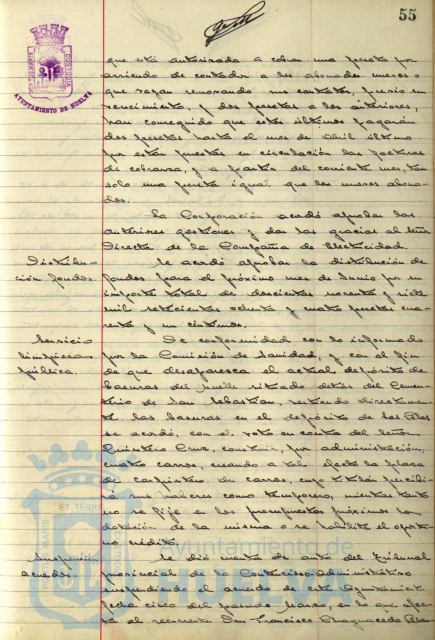 55
AYUNTAMIENTO DE HUELVA
que está autorizada a cobrar una peseta por
arriendo de contador a los abonados nuevos o
que vayan renovando sus contratos, previo su
vencimiento, y dos pesetas a los anteriores,
han conseguido que estos últimos pagarán
dos pesetas hasta el mes de Abril último
por estar puestas en circulación las facturas
de cobranza, y a partir del corriente mes, tan
solo una peseta igual que los nuevos abona-
dos.
La Corporación acordó aprobar las
anteriores gestiones y dar las gracias al Señor
Director de la Compañia de Electricidad.
Distribu-
ción fondos.
Se acordó aprobar la distribución de
fondos para el próximo mes de Junio por su
importe total de doscientas noventa y siete
mil setecientas ochenta y cuatro pesetas cua-
renta y un céntimos.
Servicio
limpieza
pública.
De conformidad con lo informado
por la Comisión de Sanidad, y con el fin
de que desaparezca el actual depósito de
basuras del Muelle situado detrás del Cemen-
terio de San Sebastian, vertiendo directamen-
te las basuras en el depósito de las
se acordó, con el voto en contra del Señor
Quintero Cruz, construir, por administración,
cuatro carros, creando a tal efecto la plaza
de carpintero de carros, cuyo titular percibi-
rá sus haberes como temporero, mientras tanto
no se fije en los presupuestos próximos la
dotación de la misma o se habilite el oportu-
no crédito.
Suspensión
acuerdo.
Se dió cuenta de auto del Tribunal
provincial de lo Contencioso-Administrativo
suspendiendo el acuerdo de este Ayuntamiento
fecha cinco del pasado Marzo, en lo que afec-
ta al recurrente Don Francisco
Ayuntamiento de
HUELVA